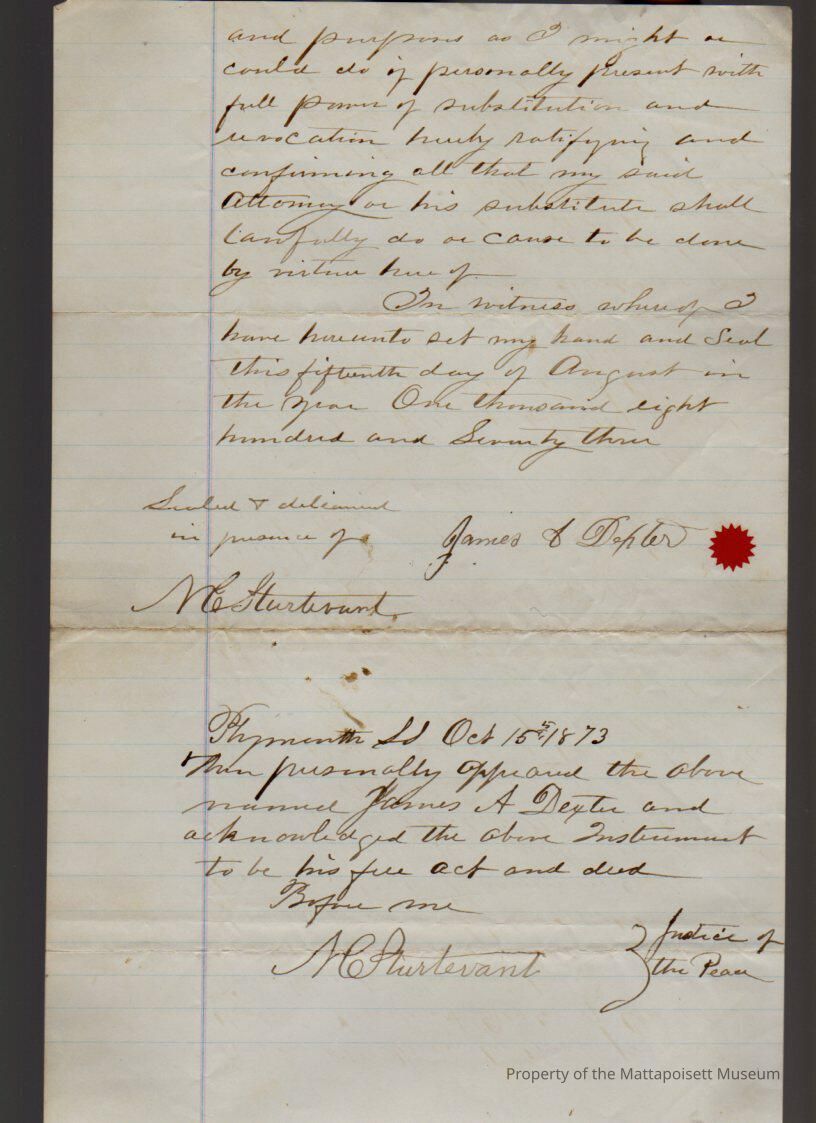 and purposes as I might or
could do if personally present with
full power of substitution and
revocation hereby ratifying and
confirming all that my said
Attorney or his substitute shall
lawfully do or cause to be done
by virtue here of
In witness whereof I
have hereunto set my hand and Seal
this fifteenth day of August in
the year One thousand eight
hundred and Seventy three
Sealed & delivered
in presence of
James A Dexter
N C Sturtevant
Plymouth Sd Oct 15th 1873
Then personally appeared the above
named James A Dexter and
acknowledged the above Instrument
to be his free act and deed
Before me
N C Sturtevant
Justice of
the Peace
Property of the Mattapoisett Museum